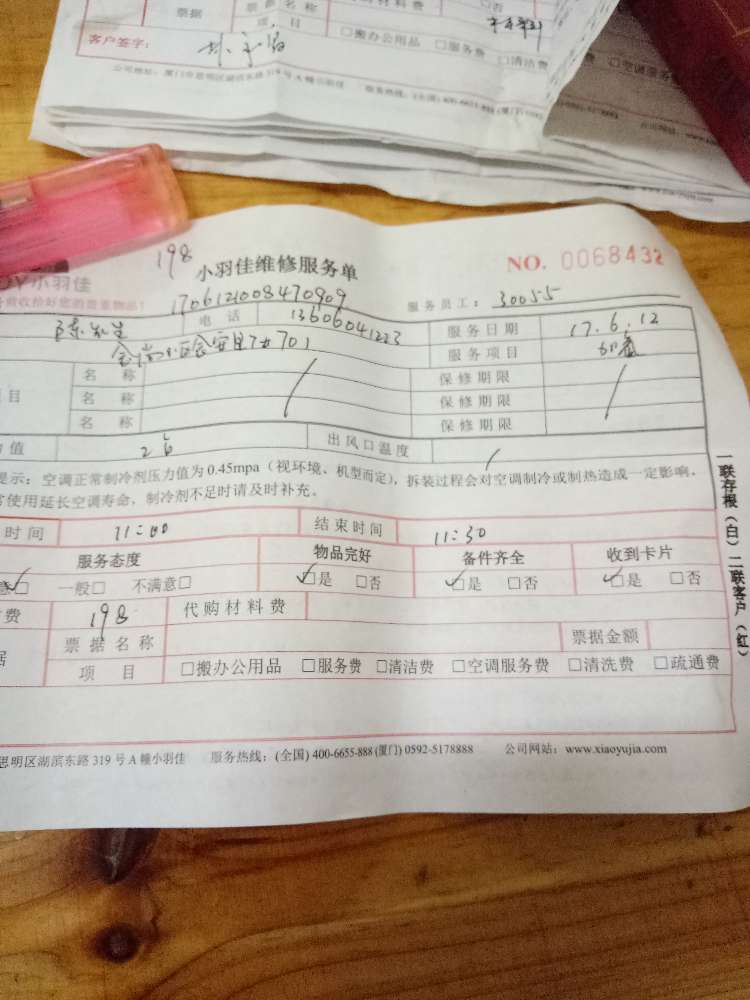 票据 票据名称 □否
项目 □搬办公用品 □服务费 □清洁费 □空调服务
客户签字:
198
小羽佳维修服务单 NO. 0068432
小羽佳
1706121008470909 服务员工: 30055
陈先生 电话 13606041223 服务日期 17.6.12
701 服务项目
目 名称 保修期限
名称 保修期限
名称 保修期限
值 26 出风口温度
提示：空调正常制冷剂压力值为0.45mpa（视环境、机型而定），拆装过程会对空调制冷或制热造成一定影响，
常使用延长空调寿命，制冷剂不足时请及时补充。
时间 11:00 结束时间 11:30
服务态度 物品完好 备件齐全 收到卡片
意□ 一般□ 不满意□ □是 □否 □是 □否 □是 □否
费 198 代购材料费
据 票据名称 票据金额
项目 □搬办公用品 □服务费 □清洁费 □空调服务费 □清洗费 □疏通费
思明区湖滨东路319号A幢小羽佳 服务热线：(全国) 400-6655-888 (厦门) 0592-5178888 公司网站：www.xiaoyujia.com
一联存根（白）二联客户（红）